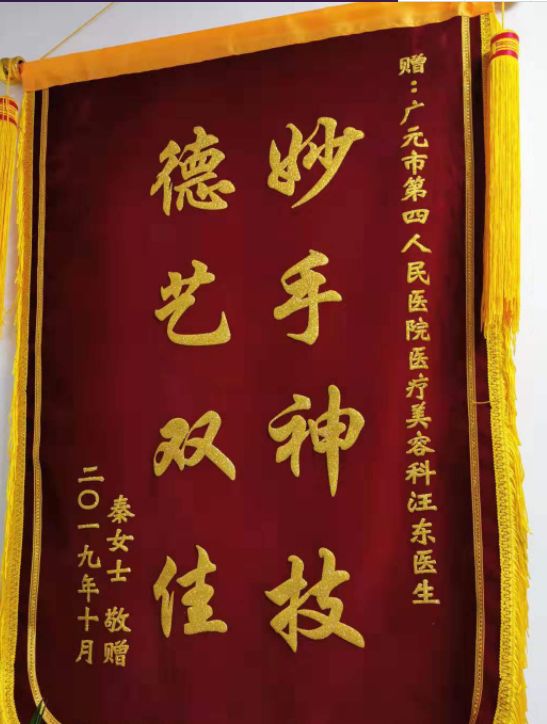 赠：广元市第四人民医院医疗美容科汪东医生
妙手神技
德艺双佳
秦女士 敬赠
二〇一九年十月